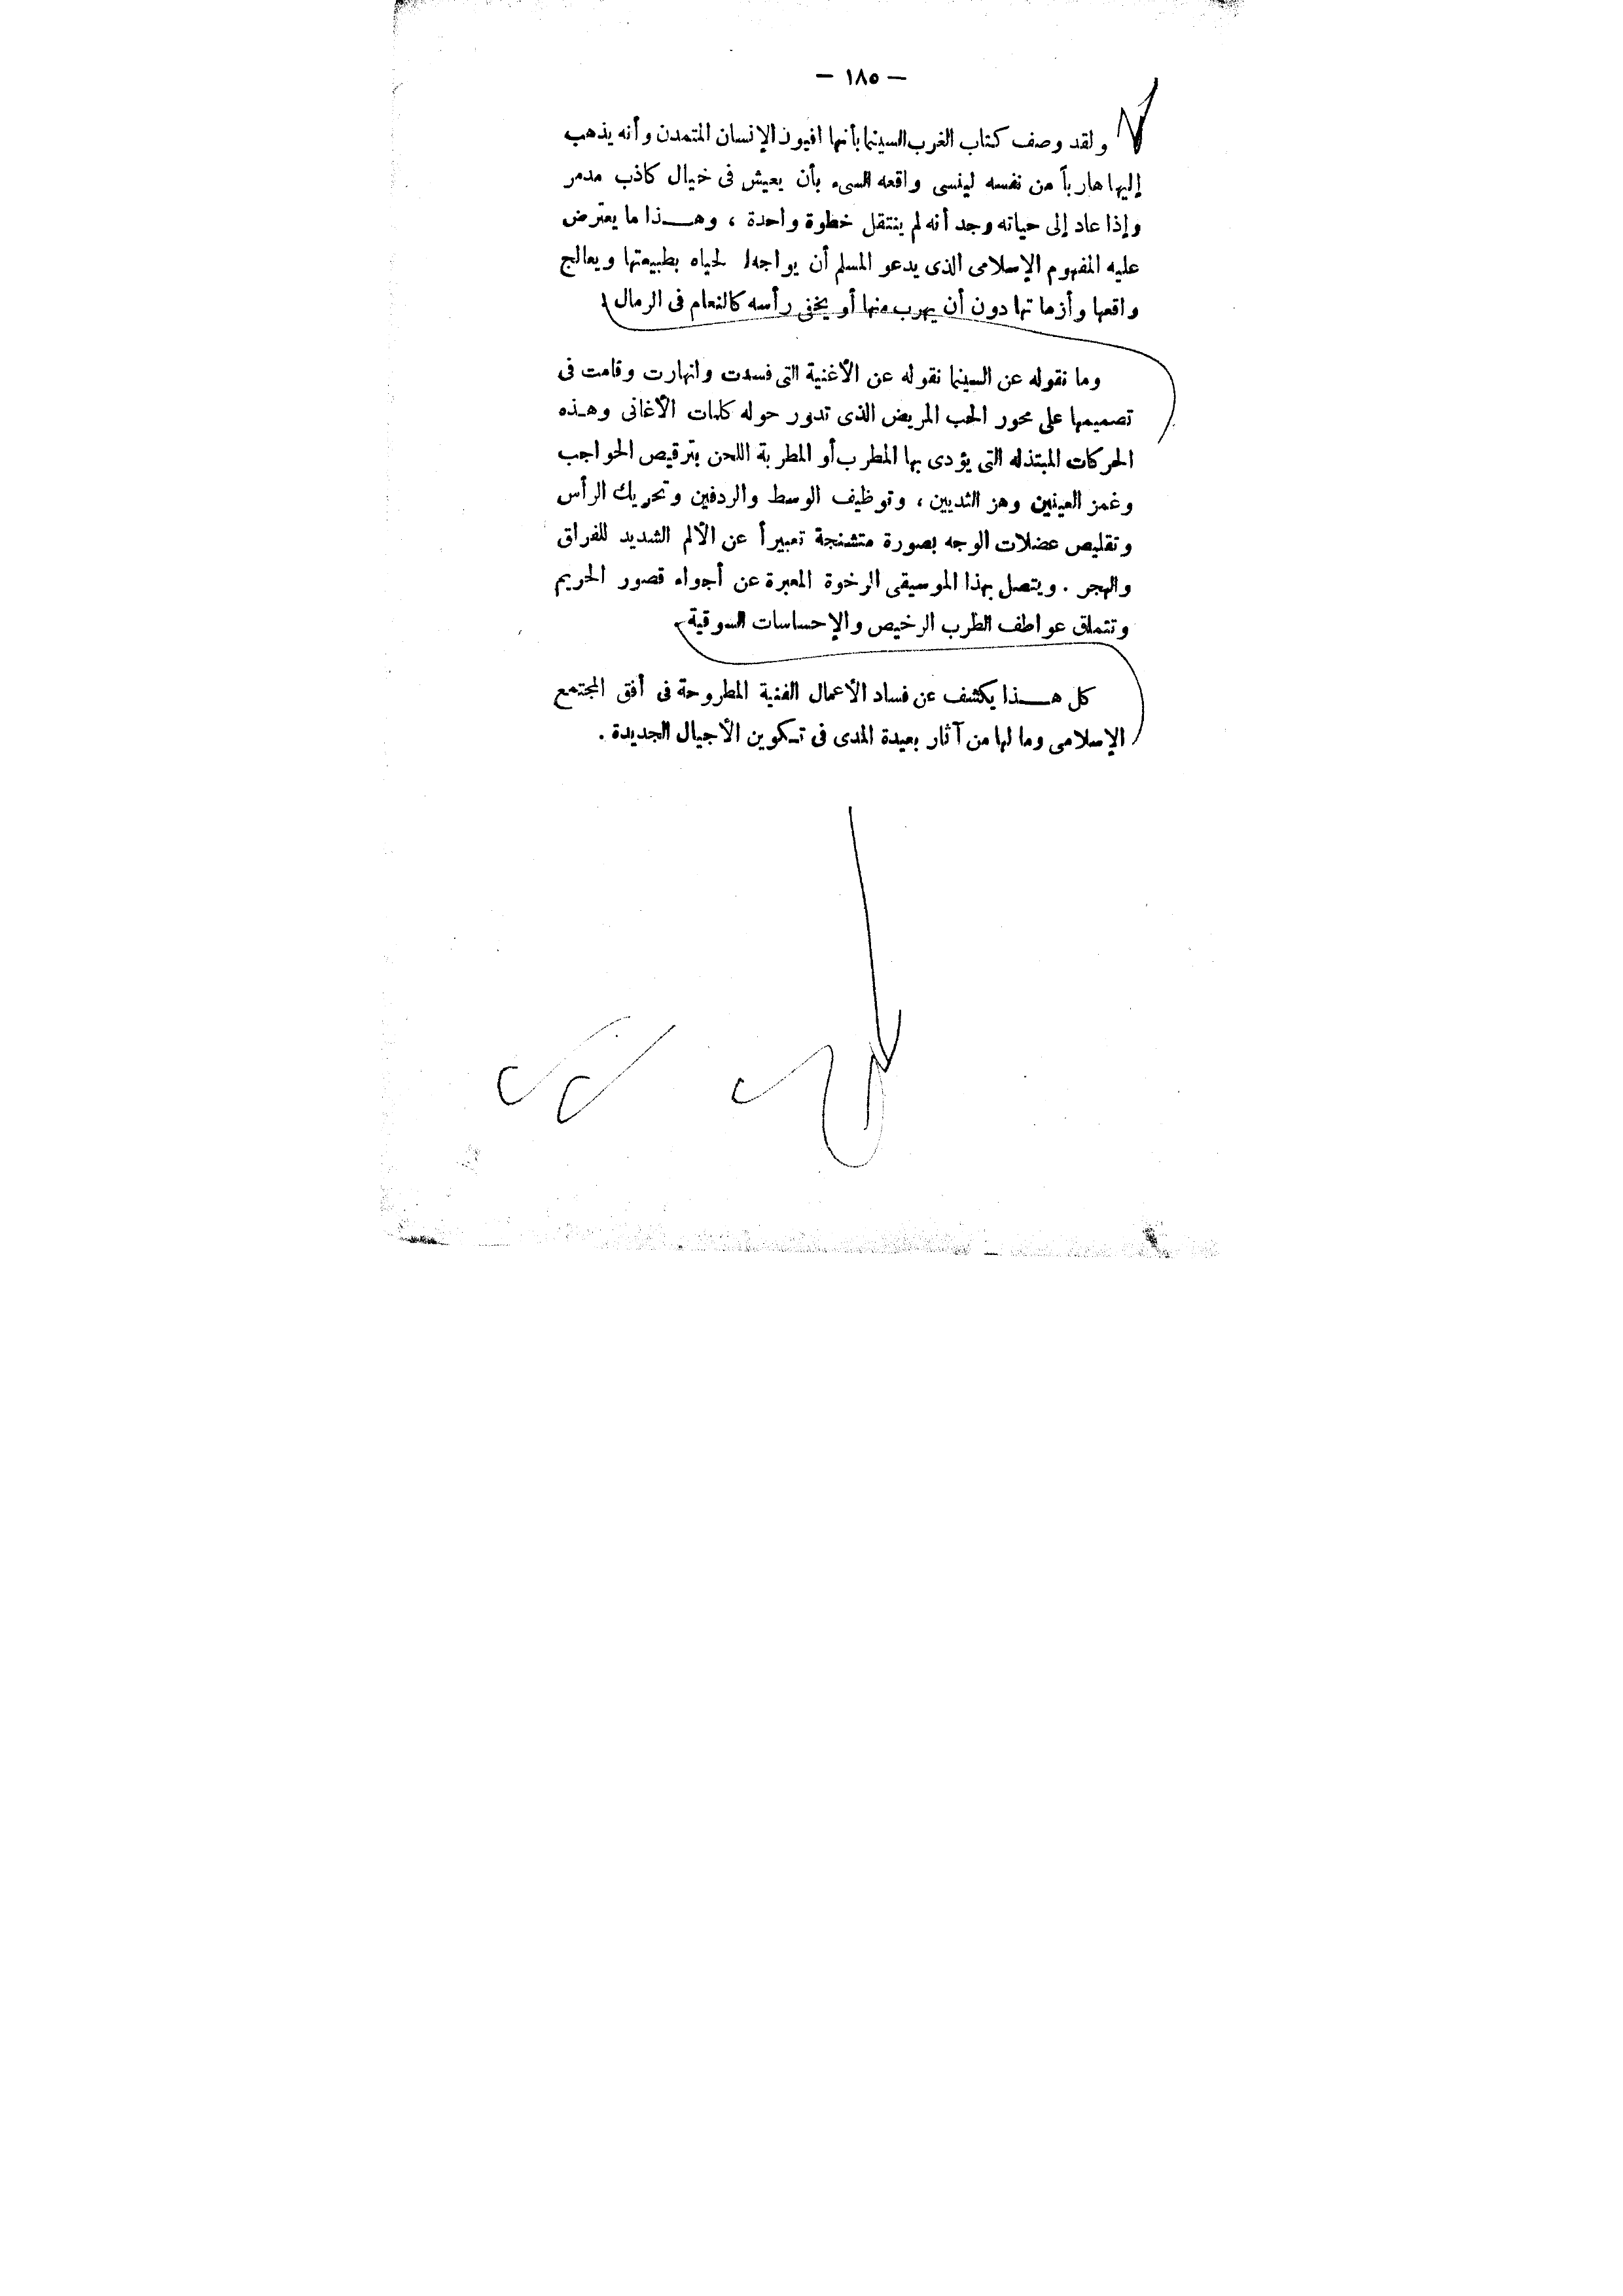 — ١٨٥ —
ولقد وصف كتاب الغرب السينما بأنها افيون الإنسان المتمدن وأنه يذهب
إليها هارباً من نفسه لينسى واقعه السىء بأن يعيش فى خيال كاذب مدمر
وإذا عاد إلى حياته وجد أنه لم ينتقل خطوة واحدة ، وهــذا ما يعترض
عليه المفهوم الإسلامى الذى يدعو المسلم أن يواجه الحياه بطبيعتها ويعالج
واقعها وأزماتها دون أن يهرب منها أو يخفى رأسه كالنعام فى الرمال .
وما نقوله عن السينما نقوله عن الأغنية التى فسدت وانهارت وقامت فى
تصميمها على محور الحب المريض الذى تدور حوله كلمات الأغانى وهـذه
الحركات المبتذله التى يؤدى بها المطرب أو المطربة اللحن بترقيص الحواجب
وغمز العينين وهز الثديين ، وتوظيف الوسط والردفين وتحريك الرأس
وتقليص عضلات الوجه بصورة متشنجة تعبيراً عن الألم الشديد للفراق
والهجر . ويتصل بهذا الموسيقى الرخوة المعبرة عن أجواء قصور الحريم
وتتملق عواطف الطرب الرخيص والإحساسات السوقية .
كل هــذا يكشف عن فساد الأعمال الفنية المطروحة فى أفق المجتمع
الإسلامى وما لها من آثار بعيدة المدى فى تـكوين الأجيال الجديدة .